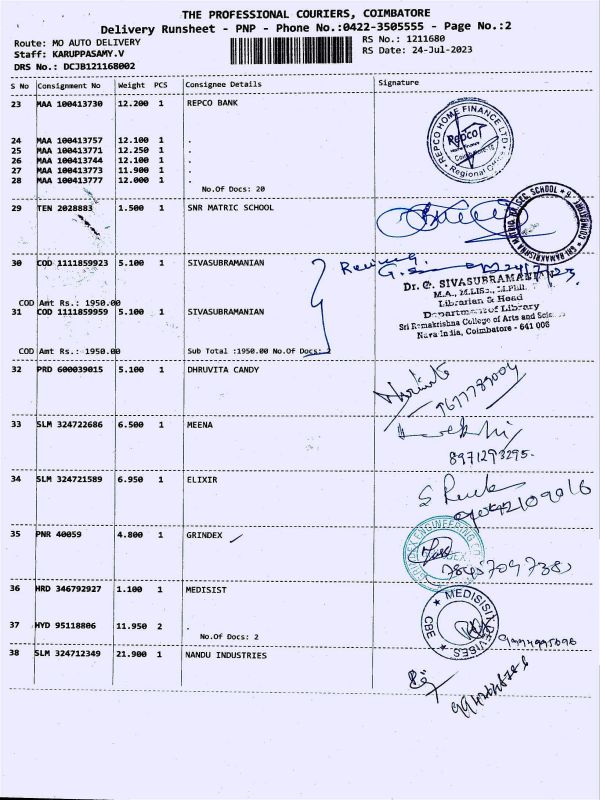 THE PROFESSIONAL COURIERS, COIMBATORE
Delivery Runsheet - PNP - Phone No.:0422-3505555 - Page No.:2
Route: MO AUTO DELIVERY
RS No.: 1211680
Staff: KARUPPASAMY.V
RS Date: 24-Jul-2023
DRS No.: DCJB121168002
S No Consignment No Weight PCS Consignee Details Signature
23 MAA 100413730 12.200 1 REPCO BANK
REPCO HOME FINANCE LTD
Repco
Regional Office
24 MAA 100413757 12.100 1 .
25 MAA 100413771 12.250 1 .
26 MAA 100413744 12.100 1 .
27 MAA 100413773 11.900 1 .
28 MAA 100413777 12.000 1 .
No.Of Docs: 20
29 TEN 2028883 1.500 1 SNR MATRIC SCHOOL
30 COD 1111859923 5.100 1 SIVASUBRAMANIAN
COD Amt Rs.: 1950.00
31 COD 1111859959 5.100 1 SIVASUBRAMANIAN
COD Amt Rs.: 1950.00 Sub Total :1950.00 No.Of Docs: 2
Dr. G. SIVASUBRAMANIAN
M.A., M.LISc., M.Phil.
Librarian & Head
Department of Library
Sri Ramakrishna College of Arts and Science
Nava India, Coimbatore - 641 006
32 PRD 600039015 5.100 1 DHRUVITA CANDY
33 SLM 324722686 6.500 1 MEENA
8971293295.
34 SLM 324721589 6.950 1 ELIXIR
35 PNR 40059 4.800 1 GRINDEX
36 HRD 346792927 1.100 1 MEDISIST
37 HYD 95118806 11.950 2 .
No.Of Docs: 2
CBE
38 SLM 324712349 21.900 1 NANDU INDUSTRIES